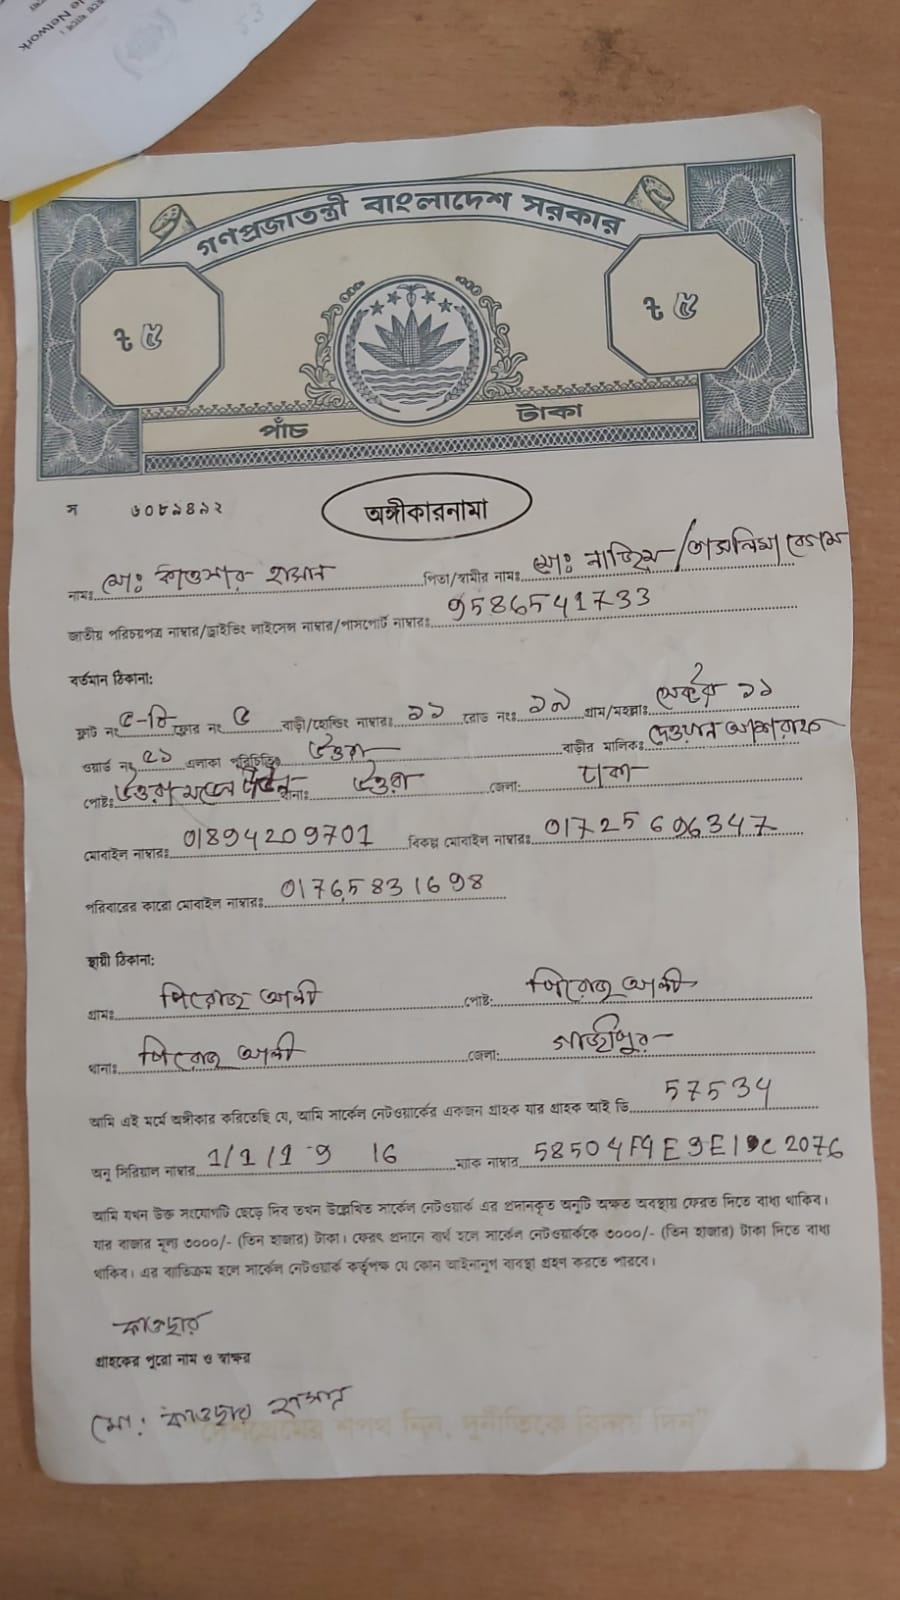 গণপ্রজাতন্ত্রী বাংলাদেশ সরকার
৳ ৫ ৳ ৫
পাঁচ টাকা
স ৬০৮৯৪৯২
অঙ্গীকারনামা
নামঃ মোঃ কাওসার হাসান পিতা/স্বামীর নামঃ মোঃ নাজিম / তাসলিমা বেগম
জাতীয় পরিচয়পত্র নাম্বার/ড্রাইভিং লাইসেন্স নাম্বার/পাসপোর্ট নাম্বারঃ 9586541733
বর্তমান ঠিকানা:
ফ্লাট নং ৫-বি ফ্লোর নং ৫ বাড়ী/হোল্ডিং নাম্বারঃ ১১ রোড নংঃ ১৯ গ্রাম/মহল্লাঃ সেক্টর ১১
ওয়ার্ড নং ৫১ এলাকা পরিচিতিঃ উত্তরা বাড়ীর মালিকঃ দেওয়ান আশরাফ
পোষ্টঃ উত্তরা মডেল টাউন থানাঃ উত্তরা জেলা: ঢাকা
মোবাইল নাম্বারঃ 01894209701 বিকল্প মোবাইল নাম্বারঃ 01725606347
পরিবারের কারো মোবাইল নাম্বারঃ 01765831698
স্থায়ী ঠিকানা:
গ্রামঃ পিরোজ আলী পোষ্ট: পিরোজ আলী
থানাঃ পিরোজ আলী জেলা: গাজীপুর
আমি এই মর্মে অঙ্গীকার করিতেছি যে, আমি সার্কেল নেটওয়ার্কের একজন গ্রাহক যার গ্রাহক আই ডি 57534
অনু সিরিয়াল নাম্বার 1/1/1-9 16 ম্যাক নাম্বার
আমি যখন উক্ত সংযোগটি ছেড়ে দিব তখন উল্লেখিত সার্কেল নেটওয়ার্ক এর প্রদানকৃত অনুটি অক্ষত অবস্থায় ফেরত দিতে বাধ্য থাকিব।
যার বাজার মূল্য ৩০০০/- (তিন হাজার) টাকা। ফেরৎ প্রদানে ব্যর্থ হলে সার্কেল নেটওয়ার্ককে ৩০০০/- (তিন হাজার) টাকা দিতে বাধ্য
থাকিব। এর ব্যতিক্রম হলে সার্কেল নেটওয়ার্ক কর্তৃপক্ষ যে কোন আইনানুগ ব্যবস্থা গ্রহণ করতে পারবে।
কাওছার
গ্রাহকের পুরো নাম ও স্বাক্ষর
মো: কাওছার হাসান
"দেশপ্রেমের শপথ নিন, দুর্নীতিকে বিদায় দিন"